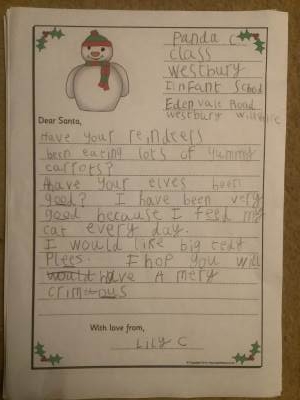 Panda C
Class
Westbury
Infant School
Eden Vale Road
westbury wiltshire
Dear Santa,
Have your reindeers
been eating lots of yummy
carrots?
Have your elves been
good? I have been very
good because I feed my
cat every day.
I would like big tedy
Plees. I hop you will
would have A mery
crimous
With love from,
Lily C